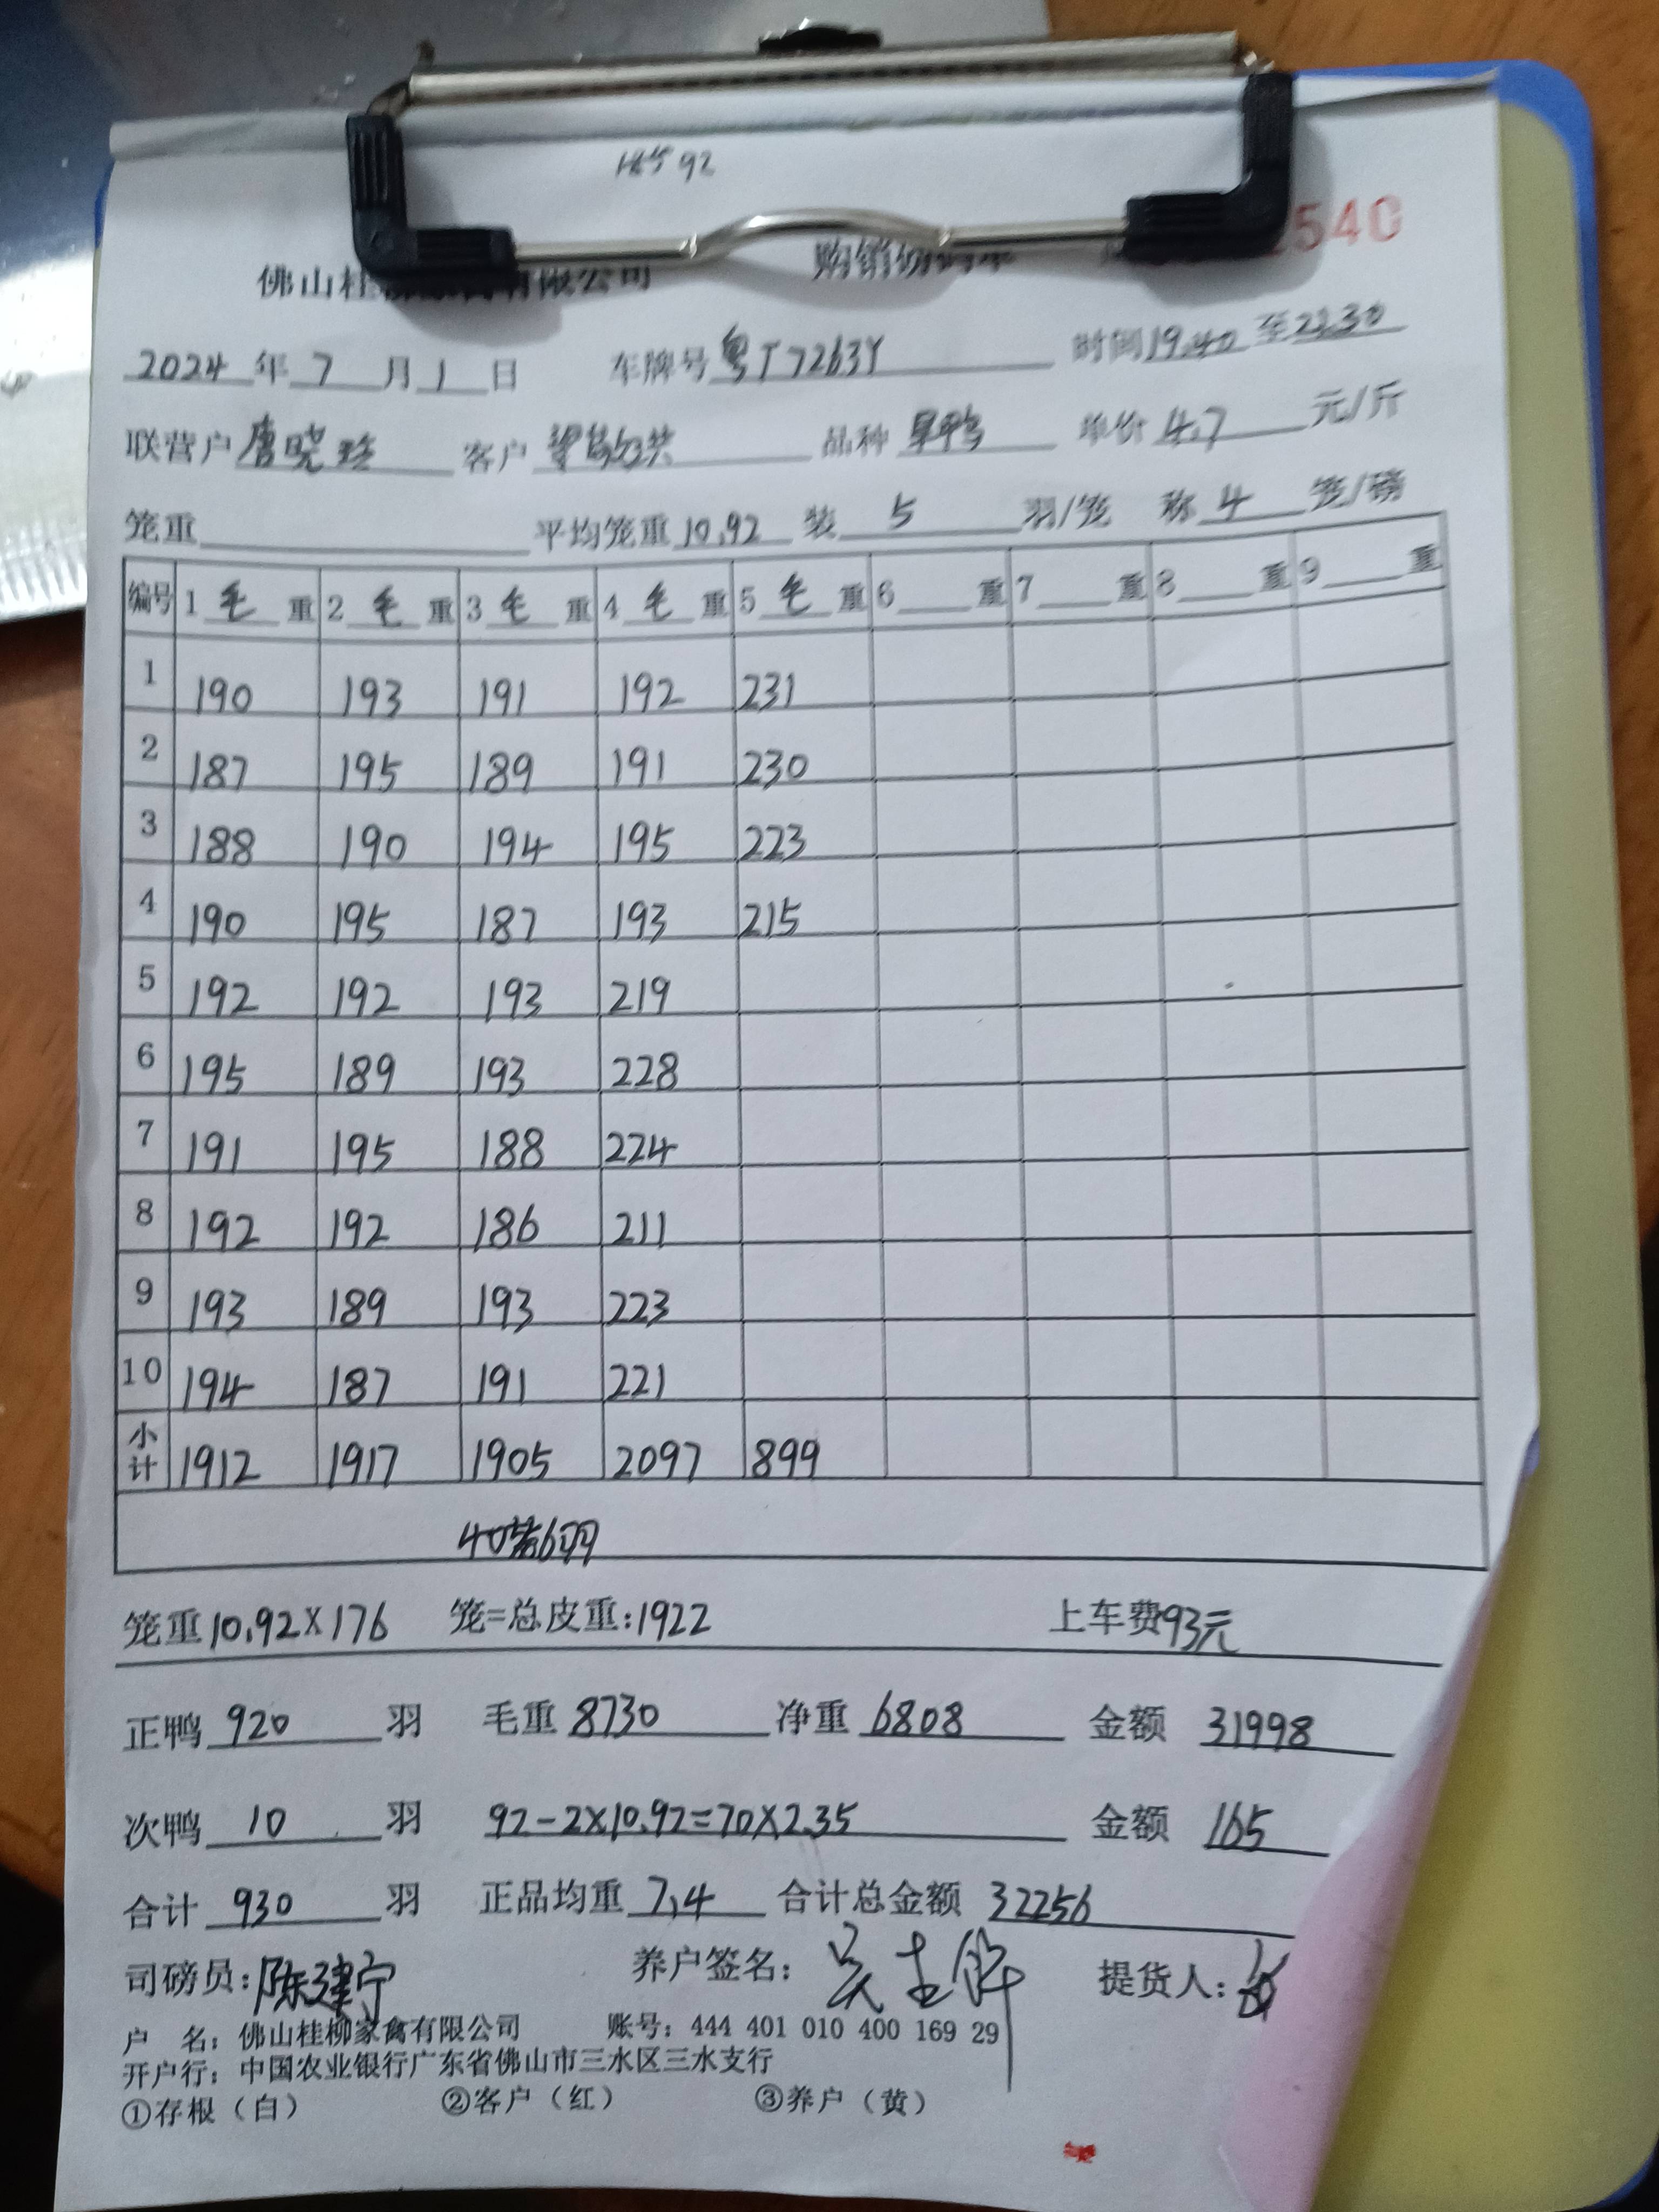 92
540
佛山桂 有限公司 购销
2024年7月1日 车牌号粤T7263Y 时间19.40至22.30
联营户唐晓 客户 品种 单价4.7元/斤
笼重 平均笼重10.92 装5羽/笼 称4笼/磅
编号 1毛重 2毛重 3毛重 4毛重 5毛重 6重 7重 8重 9重
1 190 193 191 192 231
2 187 195 189 191 230
3 188 190 194 195 223
4 190 195 187 193 215
5 192 192 193 219
6 195 189 193 228
7 191 195 188 224
8 192 192 186 211
9 193 189 193 223
10 194 187 191 221
小计 1912 1917 1905 2097 899
40装6羽
笼重10.92X176 笼=总皮重:1922 上车费93元
正鸭920羽 毛重8730 净重6808 金额31998
次鸭10羽 92-2X10.92=70X2.35 金额165
合计930羽 正品均重7.4 合计总金额32256
司磅员:陈建宁 养户签名: 提货人:
户 名: 佛山桂柳家禽有限公司 账号: 444 401 010 400 169 29
开户行: 中国农业银行广东省佛山市三水区三水支行
①存根(白) ②客户(红) ③养户(黄)